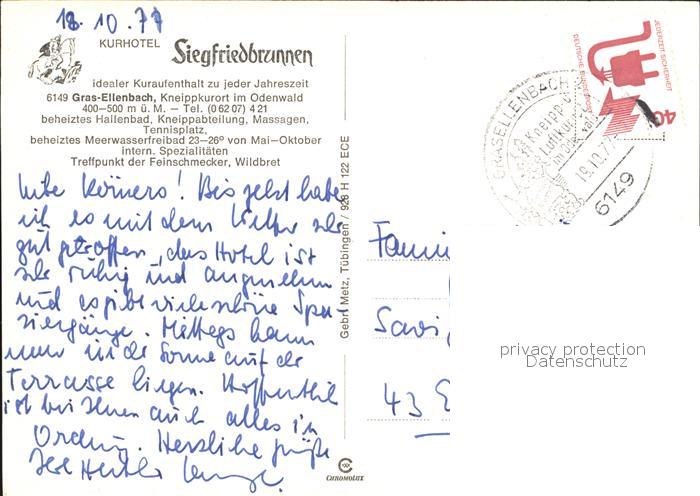 18.10.77
KURHOTEL Siegfriedbrunnen
idealer Kuraufenthalt zu jeder Jahreszeit
6149 Gras-Ellenbach, Kneippkurort im Odenwald
400–500 m ü. M. – Tel. (0 62 07) 4 21
beheiztes Hallenbad, Kneippabteilung, Massagen,
Tennisplatz,
beheiztes Meerwasserfreibad 23–26° von Mai–Oktober
intern. Spezialitäten
Treffpunkt der Feinschmecker, Wildbret
Liebe Körners! Bis jetzt habe
ich es mit dem Wetter sehr
gut getroffen, das Hotel ist
sehr ruhig und angenehm
und es gibt viele schöne Spa-
ziergänge. Mittags kann
man in der Sonne auf der
Terrasse liegen. Hoffentlich
ist bei Ihnen auch alles in
Ordnung. Herzliche Grüße
Ihre
Gebr. Metz, Tübingen / 928 H 122 ECE
CHROMOLUX
JEDERZEIT SICHERHEIT
DEUTSCHE BUNDESPOST
40
GRASELLENBACH
Kneipp-u.
Luftkur
im Odenwald
18.10.77
6149
Fami
Savi
43 E
privacy protection
Datenschutz